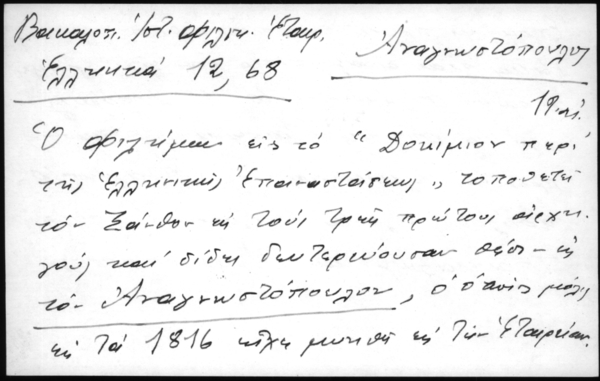 Βακαλοπ. Ἱστ. Φιλικ. Ἑταιρ.
Ἑλληνικά 12, 68
Ἀναγνωστόπουλος
19 αἰ.
Ὁ Φιλήμων εἰς τό "Δοκίμιον περί
τῆς Ἑλληνικῆς Ἐπαναστάσεως" τοποθετεῖ
τόν Ξάνθον εἰς τούς τρεῖς πρώτους ἀρχη-
γούς καί δίδει δευτερεύουσαν θέσιν εἰς
τόν Ἀναγνωστόπουλον, ὁ ὁποῖος μόλις
εἰς τά 1816 εἶχε μυηθῆ εἰς τήν Ἑταιρείαν.